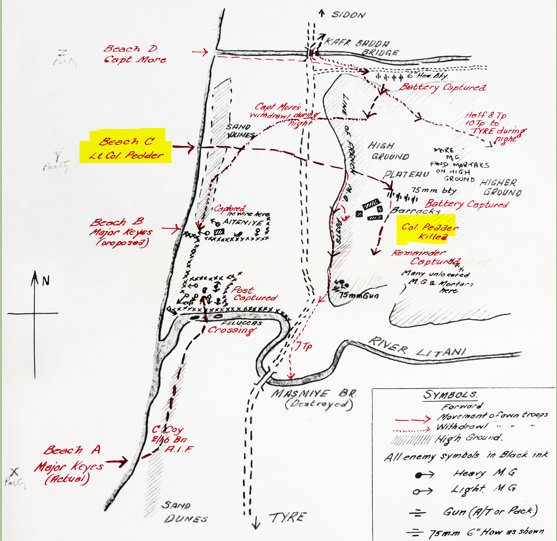 SIDON
KAFR BADDA
BRIDGE
Beach D.
Capt. More
Z
Party
6" How. Bty
Battery Captured
Capt. More's
withdrawl during
night
Half 8 Tp
10 Tp to
TYRE during
night
SAND
DUNES
LINE OF FRENCH M.G. POSTS
HIGH
GROUND
MORE
M.G.
AND MORTARS
ON HIGH
GROUND
Beach C
Lt. Col. Pedder
Y
Party
PLATEAU
HIGHER
GROUND
75mm bty
Battery Captured
Barracks
Captured
no mine here
AITENIYE
Beach B
Major Keyes
(proposed)
Col. Pedder
Killed
Remainder
Captured
Many unlocated
M.G & Mortars
here
75mm Gun
Post
Captured
N
FELUCCAS
Crossing
7 Tp
RIVER LITANI
MASMIYE BR
(Destroyed)
C Coy
2/16 Bn
A.I.F
Beach A
Major Keyes
(Actual)
X
Party
SAND
DUNES
TYRE
SYMBOLS
Forward
Movement of own troops
Withdrawl " " "
High Ground.
All enemy symbols in Black ink
Heavy M.G
Light M.G
Gun (A/T or Pack)
75mm 6" How as shown